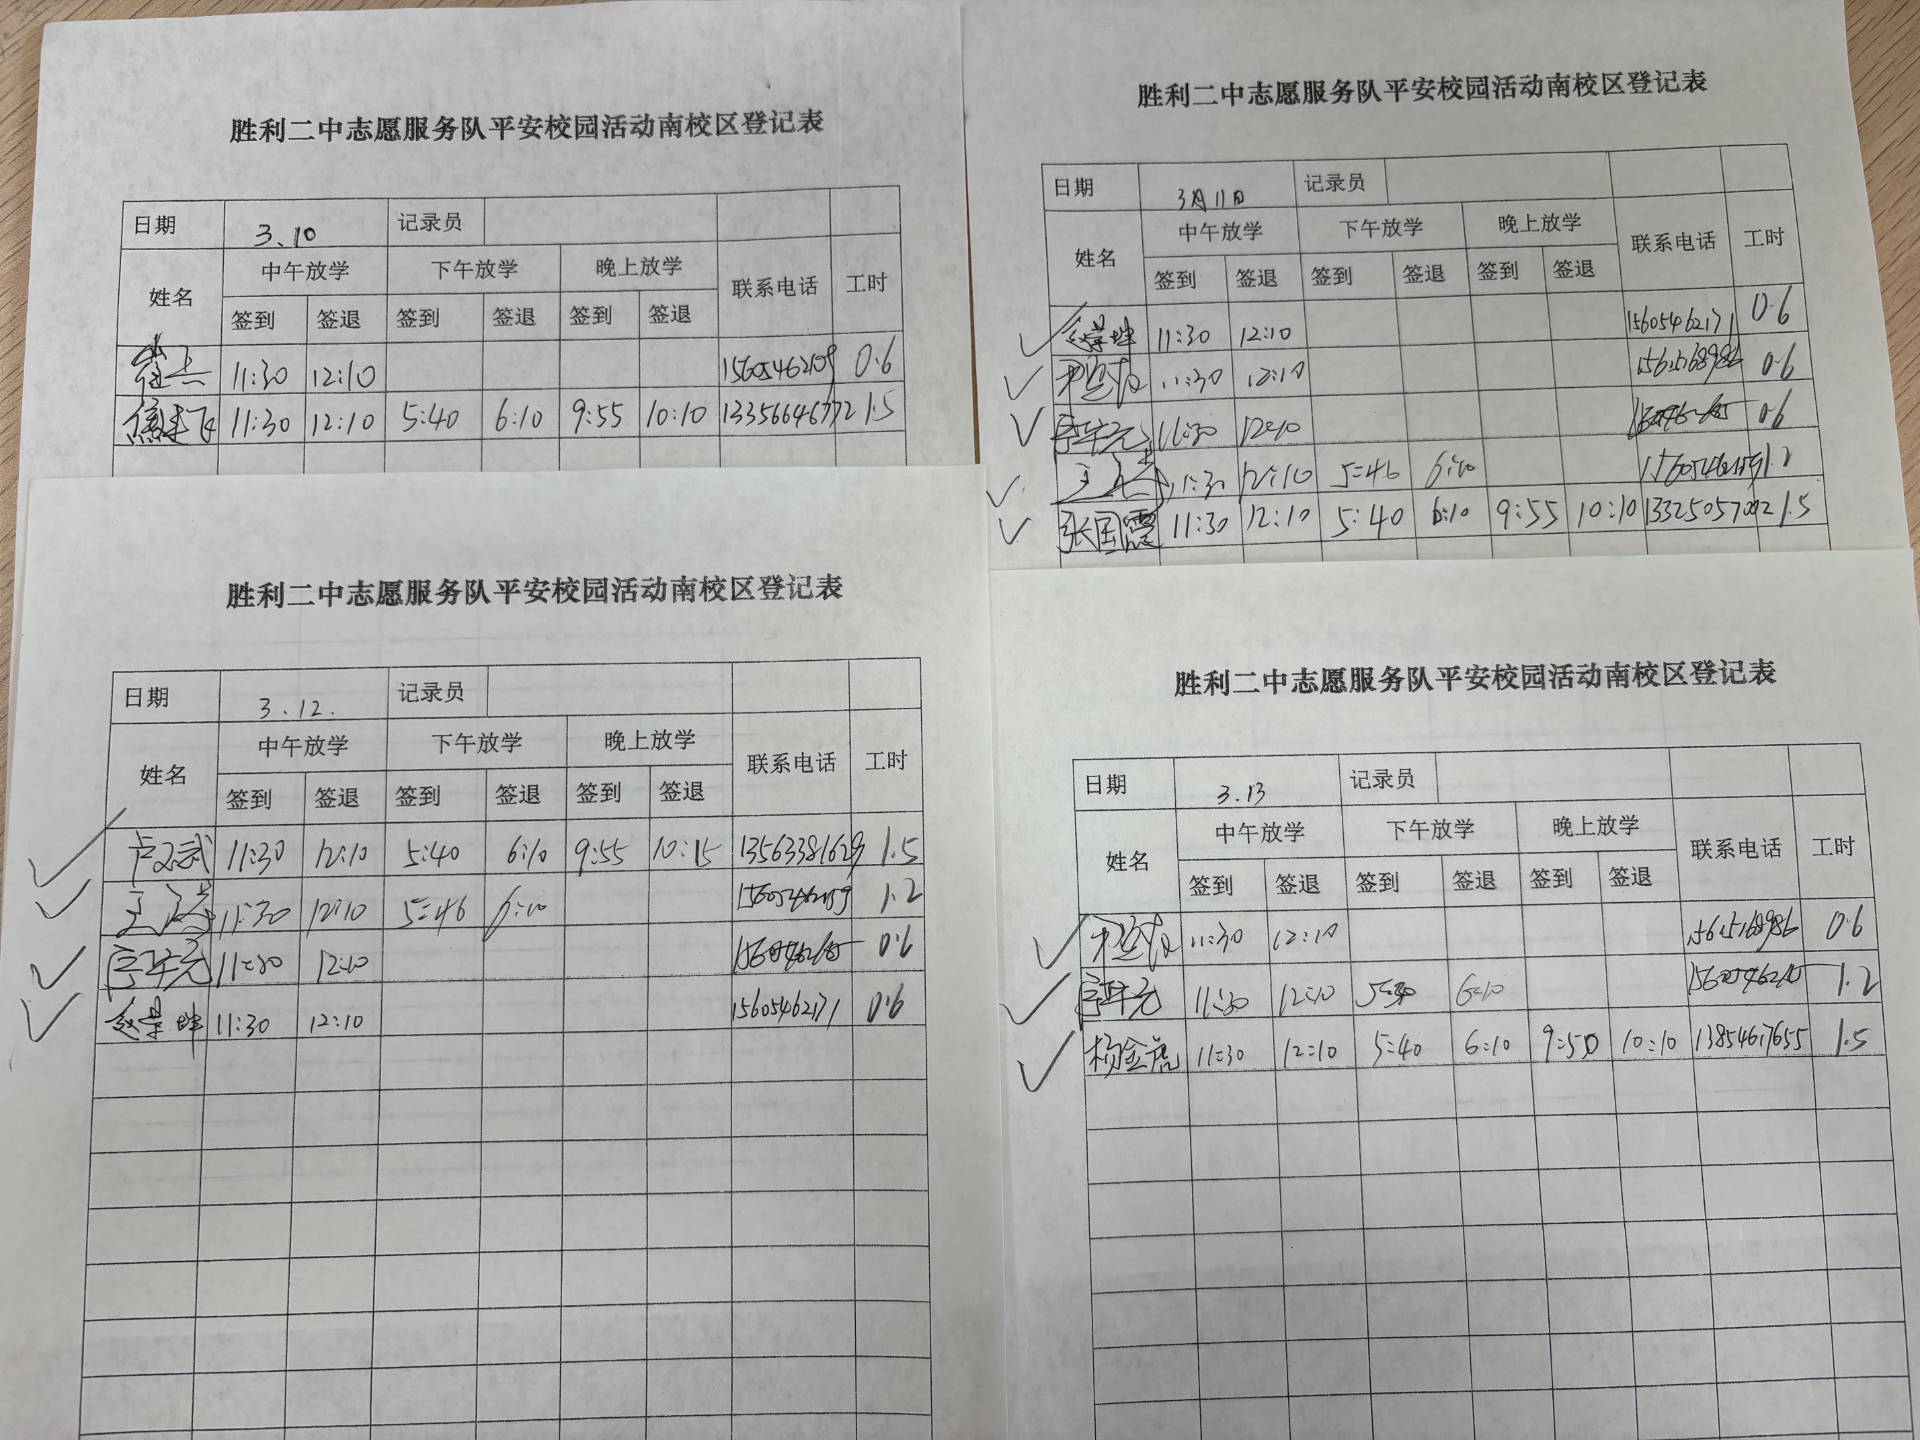 胜利二中志愿服务队平安校园活动南校区登记表
日期 3.10 记录员
姓名 中午放学 下午放学 晚上放学 联系电话 工时
签到 签退 签到 签退 签到 签退
11:30 12:10 15605462109 0.6
11:30 12:10 5:40 6:10 9:55 10:10 13356646772 1.5
胜利二中志愿服务队平安校园活动南校区登记表
日期 3月11日 记录员
姓名 中午放学 下午放学 晚上放学 联系电话 工时
签到 签退 签到 签退 签到 签退
11:30 12:10 15605462171 0.6
11:30 12:10 15615168986 0.6
11:30 12:10 0.6
11:30 12:10 5:40 6:10 15605462159 1.2
张国震 11:30 12:10 5:40 6:10 9:55 10:10 13325057002 1.5
胜利二中志愿服务队平安校园活动南校区登记表
日期 3.12. 记录员
姓名 中午放学 下午放学 晚上放学 联系电话 工时
签到 签退 签到 签退 签到 签退
11:30 12:10 5:40 6:10 9:55 10:15 13563381629 1.5
11:30 12:10 5:40 6:10 15605462159 1.2
11:30 12:10 0.6
11:30 12:10 15605462171 0.6
胜利二中志愿服务队平安校园活动南校区登记表
日期 3.13 记录员
姓名 中午放学 下午放学 晚上放学 联系电话 工时
签到 签退 签到 签退 签到 签退
11:30 12:10 15615168986 0.6
11:30 12:10 6:10 1.2
杨金虎 11:30 12:10 5:40 6:10 9:50 10:10 13854617655 1.5